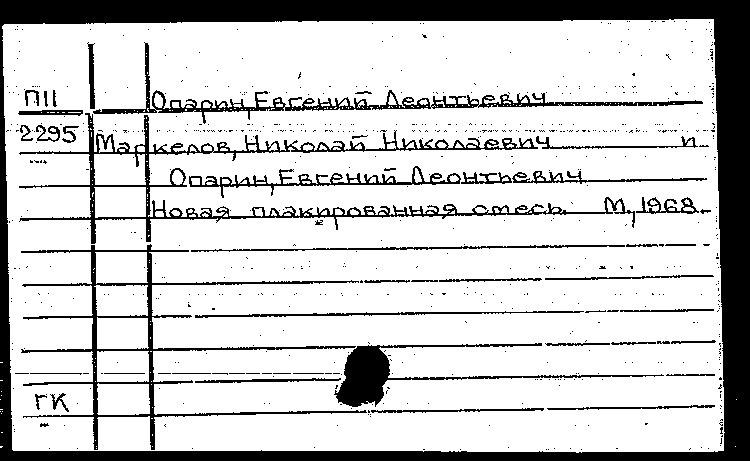 П11 Опарин, Евгений Леонтьевич
2295 Маркелов, Николай Николаевич и
Опарин, Евгений Леонтьевич
Новая плакированная смесь. М., 1968.
ГК